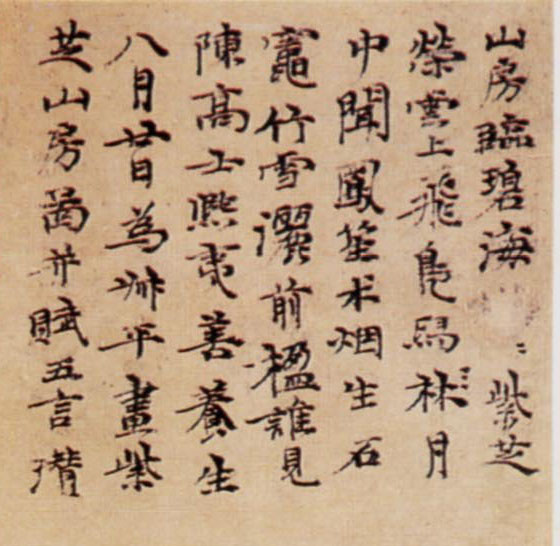 山房臨碧海紫芝
榮雲上飛鳧舄林月
中聞鳳笙术烟生石
竈竹雪灑前楹誰見
陳高士熙夷善養生
八月廿日為叔平畫紫
芝山房啚并賦五言瓚